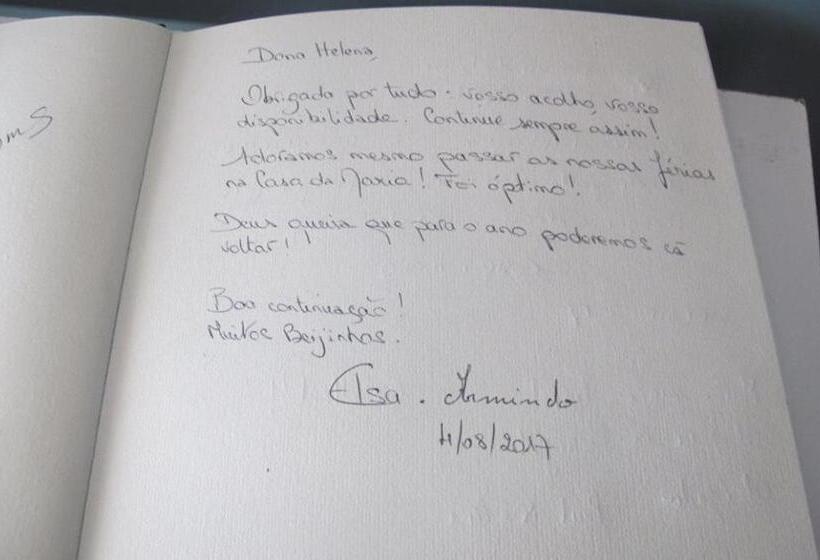 oms
Dona Helena,
Obrigada por tudo: vosso acolho, vosso
disponibilidade. Continue sempre assim!
Adoramos mesmo passar as nossas férias
na Casa da Maria! Foi óptimo!
Deus queira que para o ano poderemos cá
voltar!
Boa continuação!
Muitos Beijinhos.
Elsa. Armindo
4/08/2017